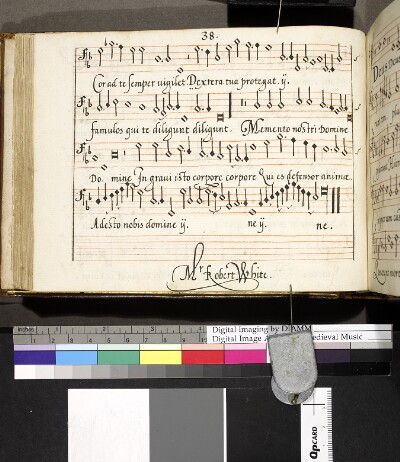 38.
Cor ad te semper vigilet Dextera tua protegat. ij.
famulos qui te diligunt diligunt. Memento nostri Domine
Do. mine In gravi isto corpore corpore Qui es defensor animæ.
Adesto nobis domine ij. ne ij. ne.
Mr Robert White.
Digital Imaging by DIAMM
Digital Image
Medieval Music
QPCARD